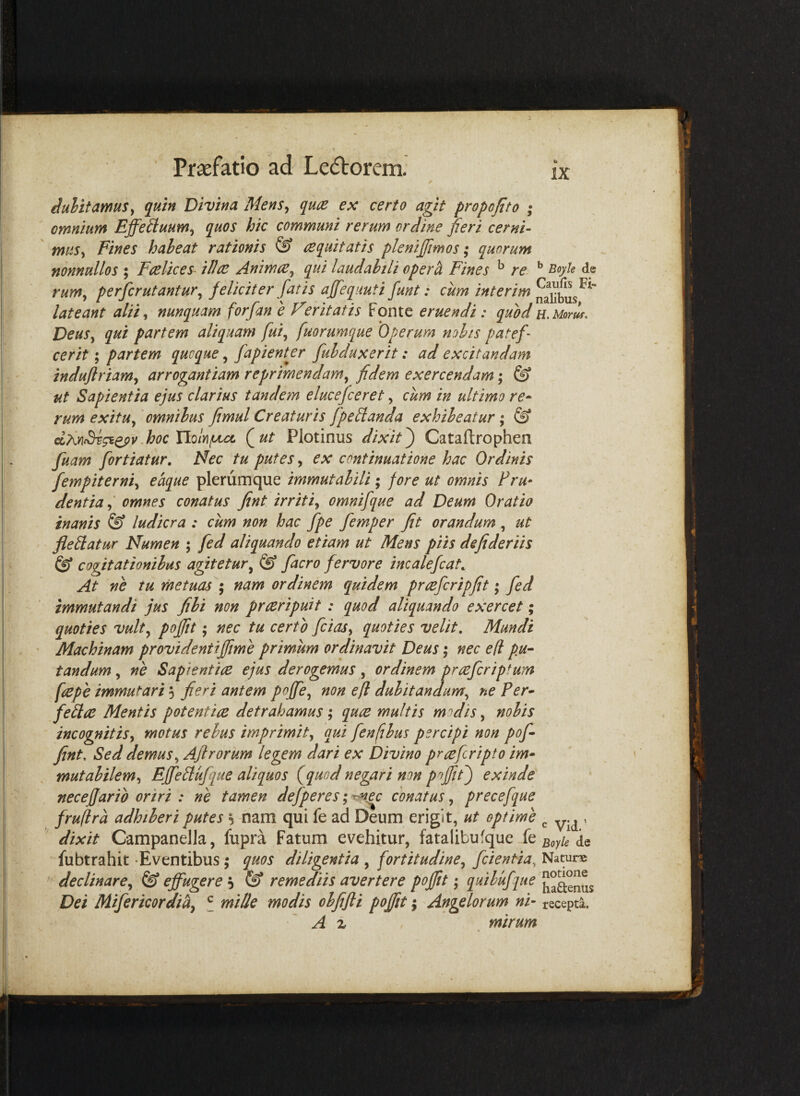 Præfatio ad Lectorem. ix
dubitamus, quin Divina Mens, quæ ex certo agit proposito ;
omnium Effectuum, quos hic communi rerum ordine fieri cerni-
mus, Fines habeat rationis & æquitatis plenissimos ; quorum
nonnullos ; Fælices illæ Animæ, qui laudabili operâ Fines ᵇ re
rum, perscrutantur, feliciter satis assequuti sunt : cùm interim
lateant alii, nunquam forsan è Veritatis Fonte eruendi : quòd
Deus, qui partem aliquam sui, suorumque Operum nobis patef-
cerit ; partem quoque, sapienter subduxerit : ad excitandam
industriam, arrogantiam reprimendam, fidem exercendam ; &
ut Sapientia ejus clarius tandem elucesceret, cùm in ultimo re-
rum exitu, omnibus simul Creaturis spectanda exhibeatur ; &
hoc Ποίημα ( ut Plotinus dixit ) Catastrophen
suam sortiatur. Nec tu putes, ex continuatione hac Ordinis
sempiterni, eâque plerùmque immutabili ; fore ut omnis Pru-
dentia, omnes conatus sint irriti, omnisque ad Deum Oratio
inanis & ludicra : cùm non hac spe semper sit orandum, ut
flectatur Numen ; sed aliquando etiam ut Mens piis desideriis
& cogitationibus agitetur, & sacro fervore incalescat.
At nè tu metuas ; nam ordinem quidem præscripsit ; sed
immutandi jus sibi non præripuit : quod aliquando exercet ;
quoties vult, possit ; nec tu certò scias, quoties velit. Mundi
Machinam providentissimè primùm ordinavit Deus ; nec est pu-
tandum, nè Sapientiæ ejus derogemus, ordinem præscriptum
sæpè immutari ; fieri antem posse, non est dubitandum, ne Per-
fectæ Mentis potentiæ detrahamus ; quæ multis modis, nobis
incognitis, motus rebus imprimit, qui sensibus percipi non pos-
sint. Sed demus, Astrorum legem dari ex Divino præscripto im-
mutabilem, Effectúsque aliquos (quod negari non possit) exinde
necessariò oriri : nè tamen desperes ; nec conatus, precesque
frustrà adhiberi putes ; nam qui se ad Deum erigit, ut optimè
dixit Campanella, suprà Fatum evehitur, fatalibusque se
subtrahit Eventibus ; quos diligentia, fortitudine, scientia,
declinare, & effugere ; & remediis avertere possit ; quibúsque
Dei Misericordiâ, ᶜ mille modis obsisti possit ; Angelorum ni-
A 2 mirum
ᵇ Boyle de
Causis Fi-
nalibus,
H. Morus.
ᶜ Vid.
Boyle de
Naturæ
notione
hactenus
receptâ.